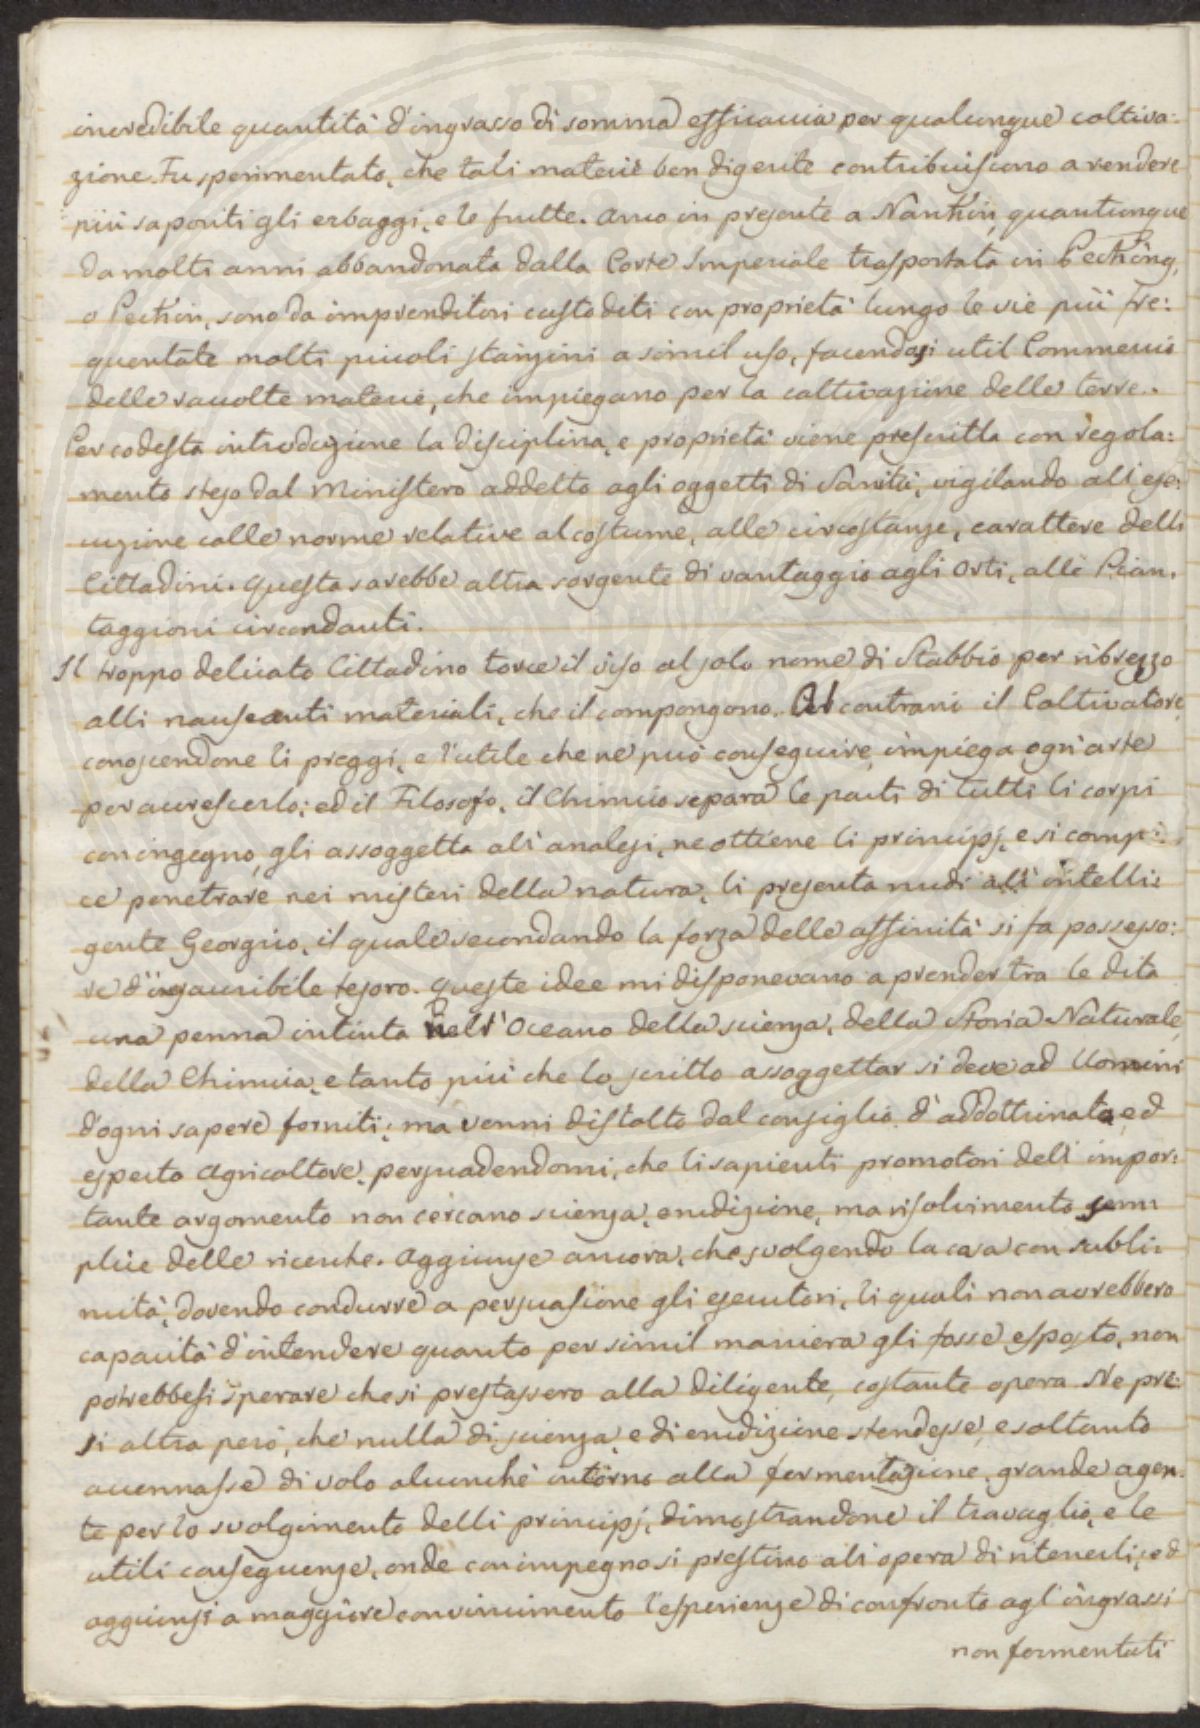 incredibile quantità d'ingrasso di somma efficaccia per qualunque coltiva:
zione. Fu sperimentato, che tali materie ben digerite contribuiscono a rendere
più saporiti gli erbaggi, e le frutte. Anco in presente a Nankin, quantunque
da molti anni abbandonata dalla Corte Imperiale trasportata in Pecking,
o Peckin, sono da imprenditori custoditi con proprietà lungo le vie più fre:
quentate molti piccoli stanzini a simil uso, facendosi util Commercio
delle raccolte materie, che impiegano per la coltivazione delle terre.
Per codesta introduzione la disciplina, e proprietà viene prescritta con regola:
mento steso dal Ministero addetto agli oggetti di Sanità, vigilando all ese:
cuzione colle norme relative al costume, alle circostanze, carattere delli
Cittadini. Questa sarebbe altra sorgente di vantaggio agli Orti, alle Pian,
taggioni circondanti.
Il troppo delicato Cittadino torce il viso al solo nome di Stabbio per ribrezzo
alli nauseanti materiali, che il compongono. Al contrario il Coltivatore,
conoscendone li preggi, e l'utile che ne può conseguire, impiega ogn'arte
per accrescerlo; ed il Filosofo, il Chimico separa le parti di tutti li corpi
con ingegno, gli assoggetta all'analesi, ne ottiene li principj, e si compi:
ce penetrare nei misteri della natura, li presenta nudi all'intelli:
gente Georgico, il quale secondando la forza delle affinità si fa possesso:
re d'ingauribile tesoro. Queste idee mi disponevano a prender tra le dita
una penna intinta nell'Oceano della scienza, della Storia Naturale,
della Chimica, e tanto più che lo scritto assoggettar si deve ad Uomini
d'ogni sapere forniti; ma venni distolto dal consiglio d'addottrinato, ed
esperto Agricoltore, persuadendomi, che li sapienti promotori dell impor:
tante argomento non cercano scienza, erudizione, ma risolvimento sem
plice delle ricerche. Aggiunse ancora, che svolgendo la cosa con subli:
mità, dovendo condurre a persuasione gli esecutori, li quali non avrebbero
capacità d'intendere quanto per simil maniera gli fosse esposto, non
potrebbesi sperare che si prestassero alla diligente, costante opera. Ne pre:
si altra però, che nulla di scienza, e di erudizione stendesse, e soltanto
accennasse di volo alcunchè intorno alla fermentazione, grande agen:
te per lo svolgimento delli principj, dimostrandone il travaglio, e le
utili conseguenze, onde con impegno si prestino all opera di ritenerli; ed
aggiunsi a maggiore convincimento l'esperienze di confronto agl'ingrassi
non fermentati